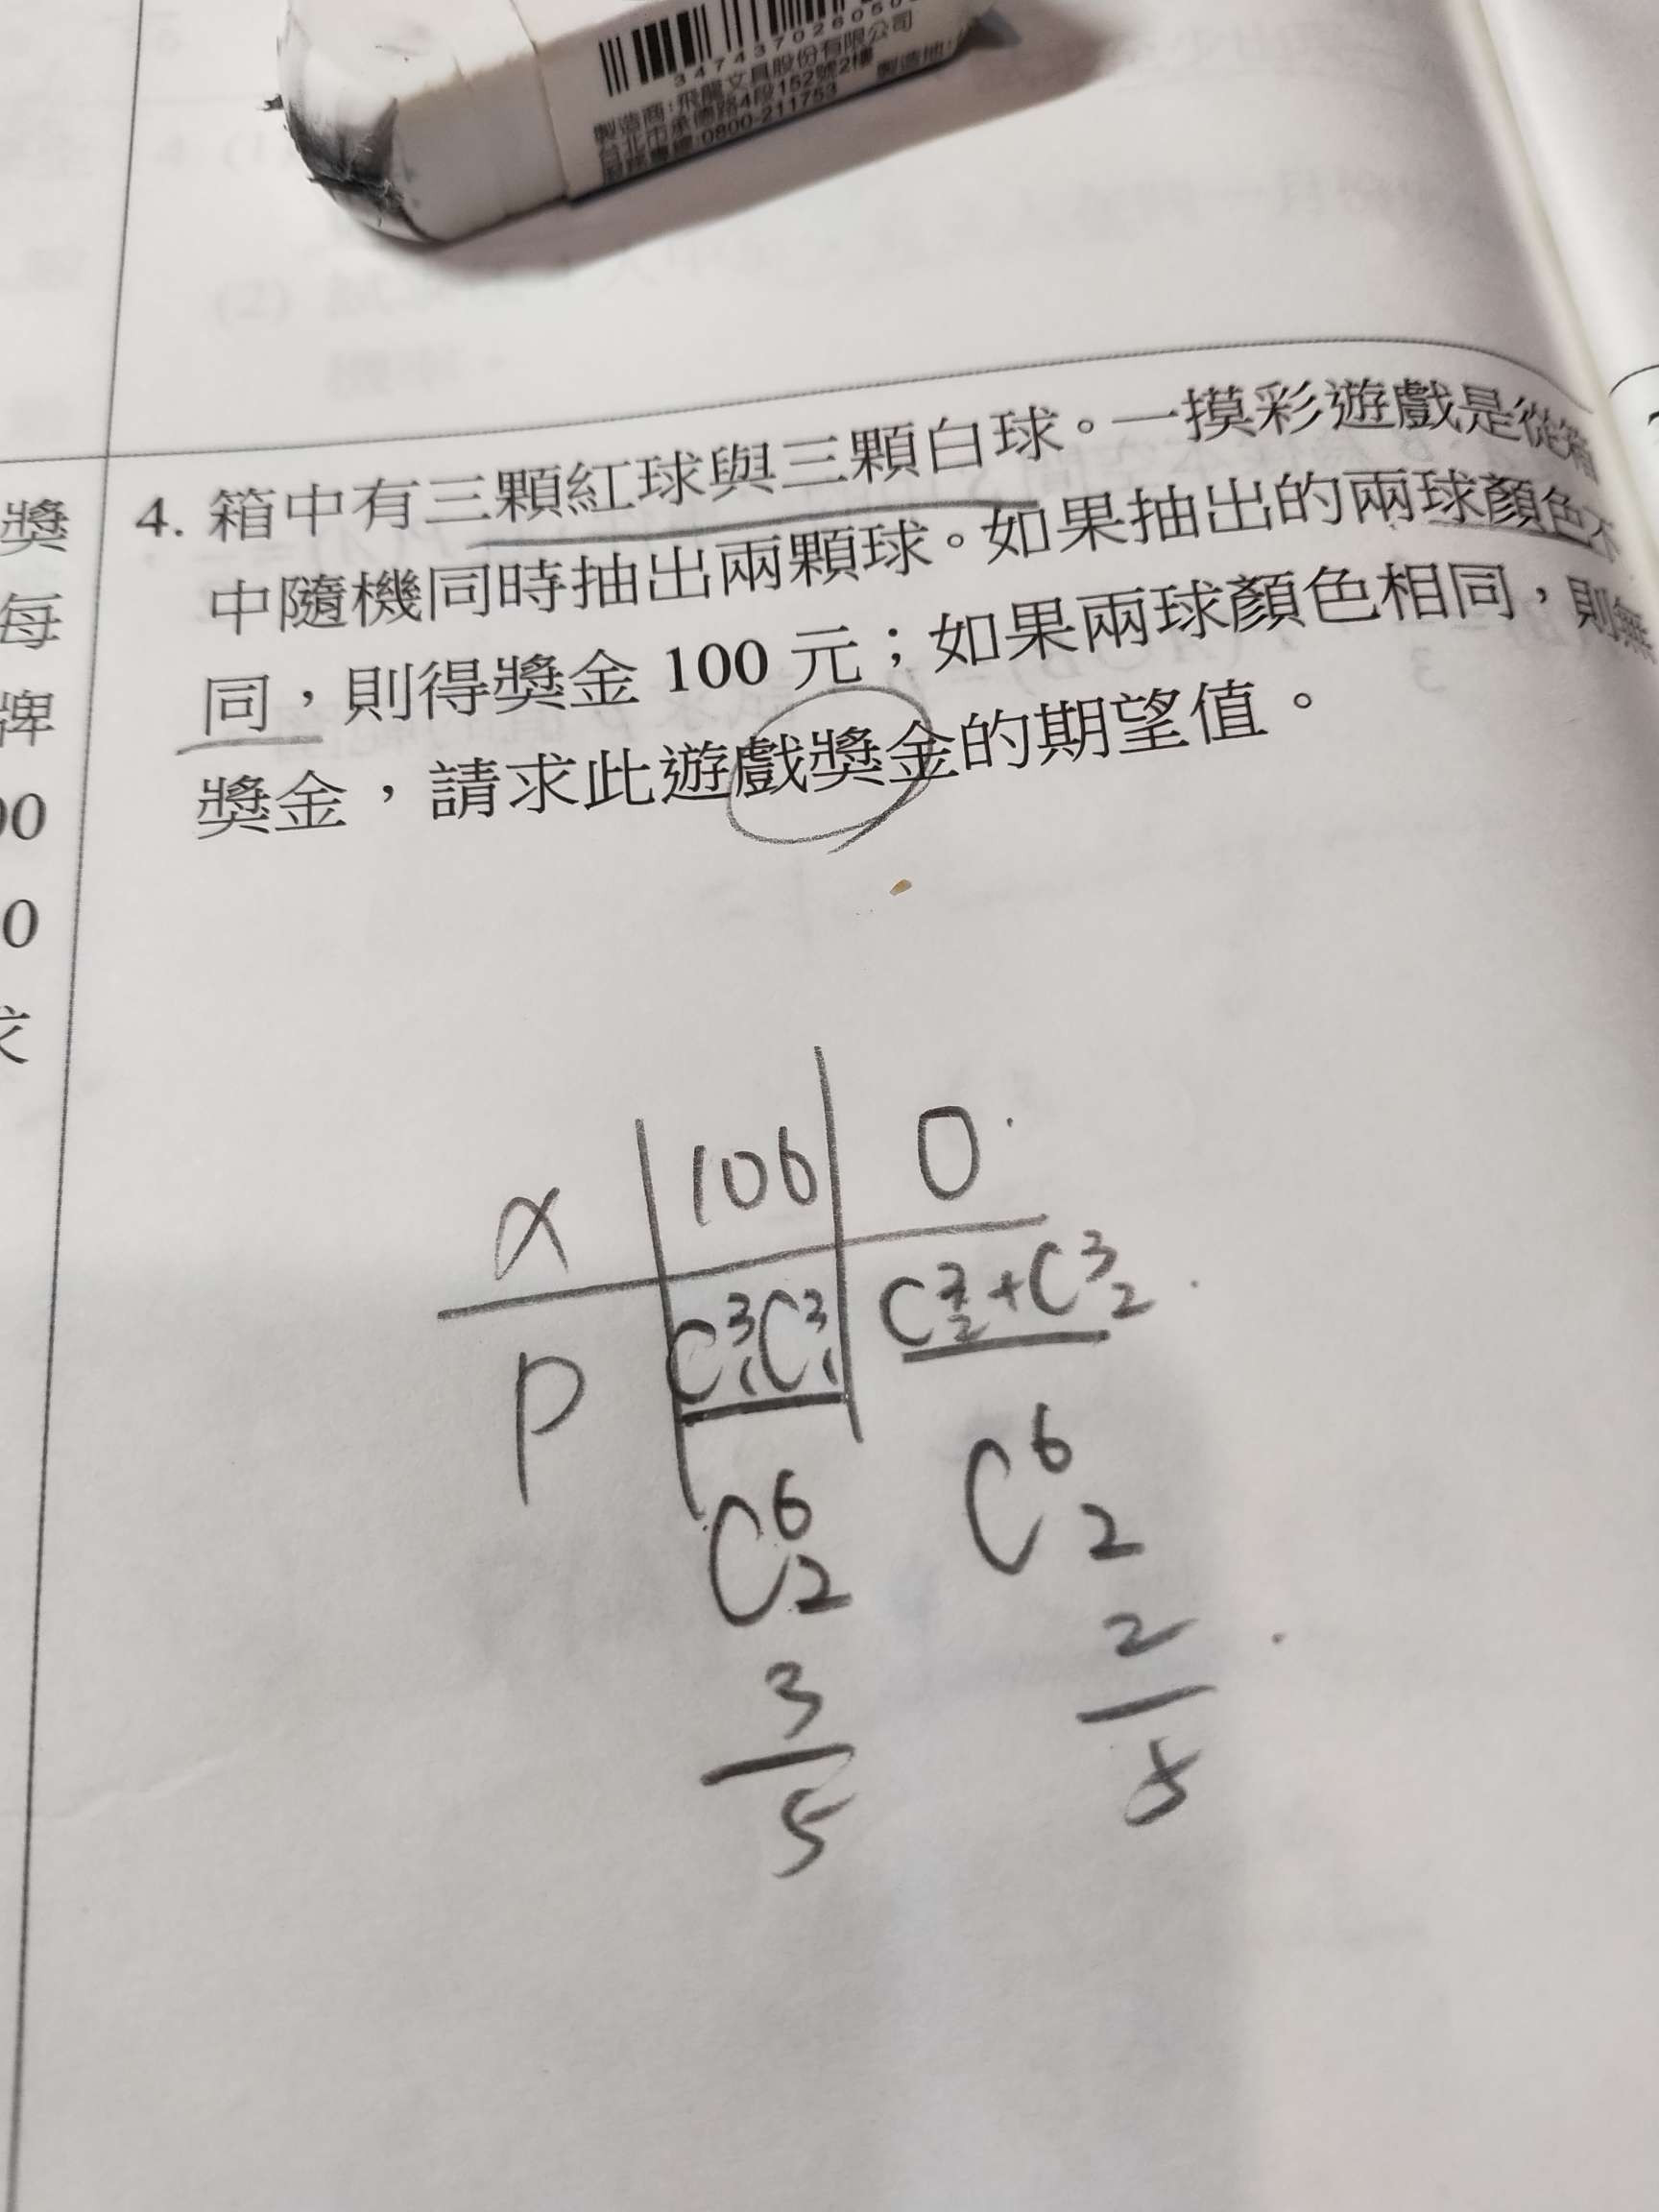 3474370260503
製造商:飛龍文具股份有限公司
台北市承德路4段152號2樓
服務專線:0800-211753
製造地:
(1)
(2)
獎
每
牌
00
0
求
4. 箱中有三顆紅球與三顆白球。一摸彩遊戲是從箱
中隨機同時抽出兩顆球。如果抽出的兩球顏色不
同,則得獎金 100 元;如果兩球顏色相同,則無
獎金,請求此遊戲獎金的期望值。
x 100 0
P C³₁C³₁ C³₂+C³₂
C⁶₂ C⁶₂
3 2
5 5